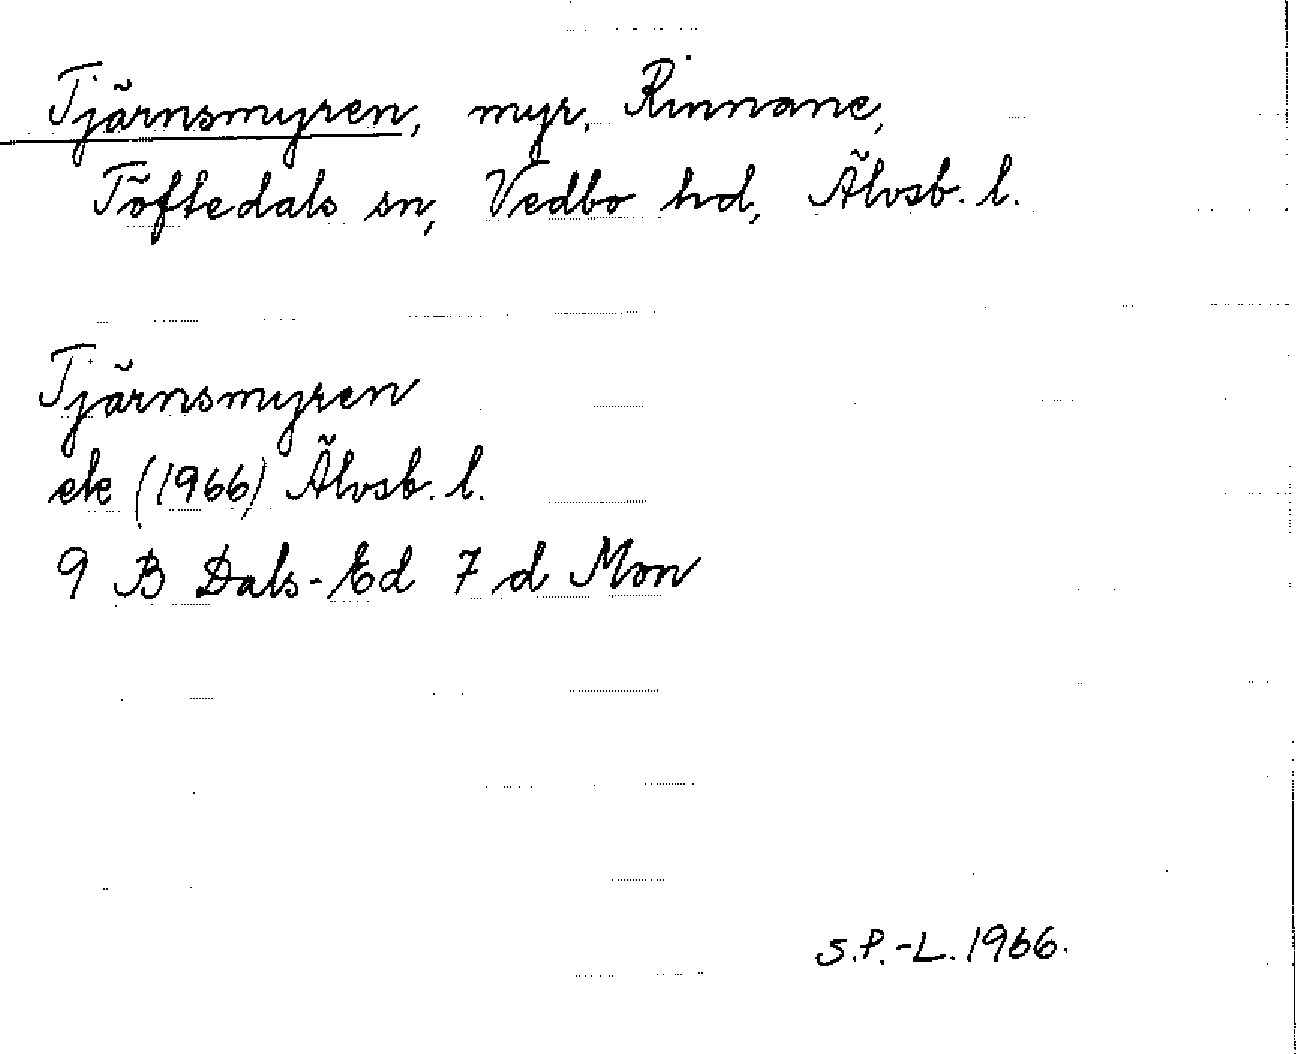 Tjärnsmyren, myr, Rinnane,
Töftedals sn, Vedbo hd, Älvsb. l.
Tjärnsmyren
ek (1966) Älvsb. l.
9 B Dals-Ed 7 d Mon
S.P.-L. 1966.